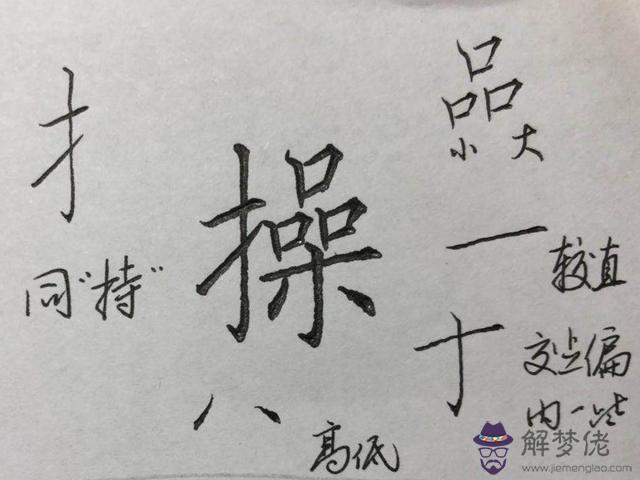 扌
同"持"
操
八
高低
品
小 大
一
较直
十
交点偏
内一些
解梦佬
www.jiemenglao.com